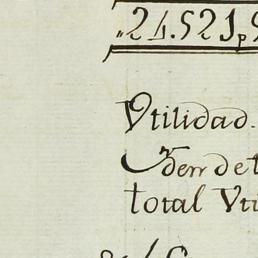 24.521,9
Vtilidad.
Yden de t
total Vti